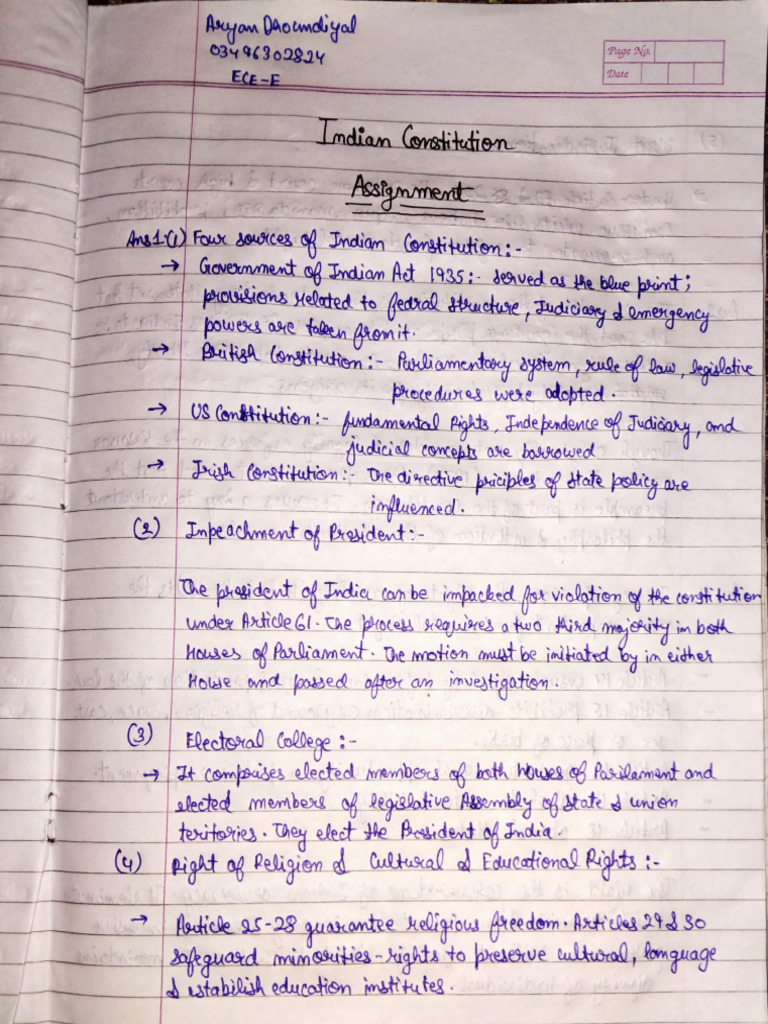 Aryan Dhoundiyal
03496302824
ECE-E
Page No.
Date
Indian Constitution
Assignment
Ans1.(1) Four sources of Indian Constitution:-
→ Government of Indian Act 1935:- served as the blue print;
provisions related to fedral structure, Judiciary & emergency
powers are taken from it.
→ British Constitution:- Parliamentary system, rule of law, legislative
procedures were adopted.
→ US Constitution:- fundamental Rights, Independence of Judiciary, and
judicial concepts are borrowed
→ Irish Constitution:- The directive priciples of state policy are
influenced.
(2) Impeachment of President:-
The president of India can be impacked for violation of the constitution
under Article 61. The process requires a two third majority in both
Houses of Parliament. The motion must be initiated by in either
House and passed after an investigation.
(3) Electoral College:-
→ It comprises elected members of both houses of Parilament and
elected members of legislative Assembly of state & union
teritories. They elect the President of India.
(4) Right of Religion & Cultural & Educational Rights:-
→ Article 25-28 guarantee religious freedom. Articles 29 & 30
safeguard minorities-rights to preserve cultural, language
& estabilish education institutes.